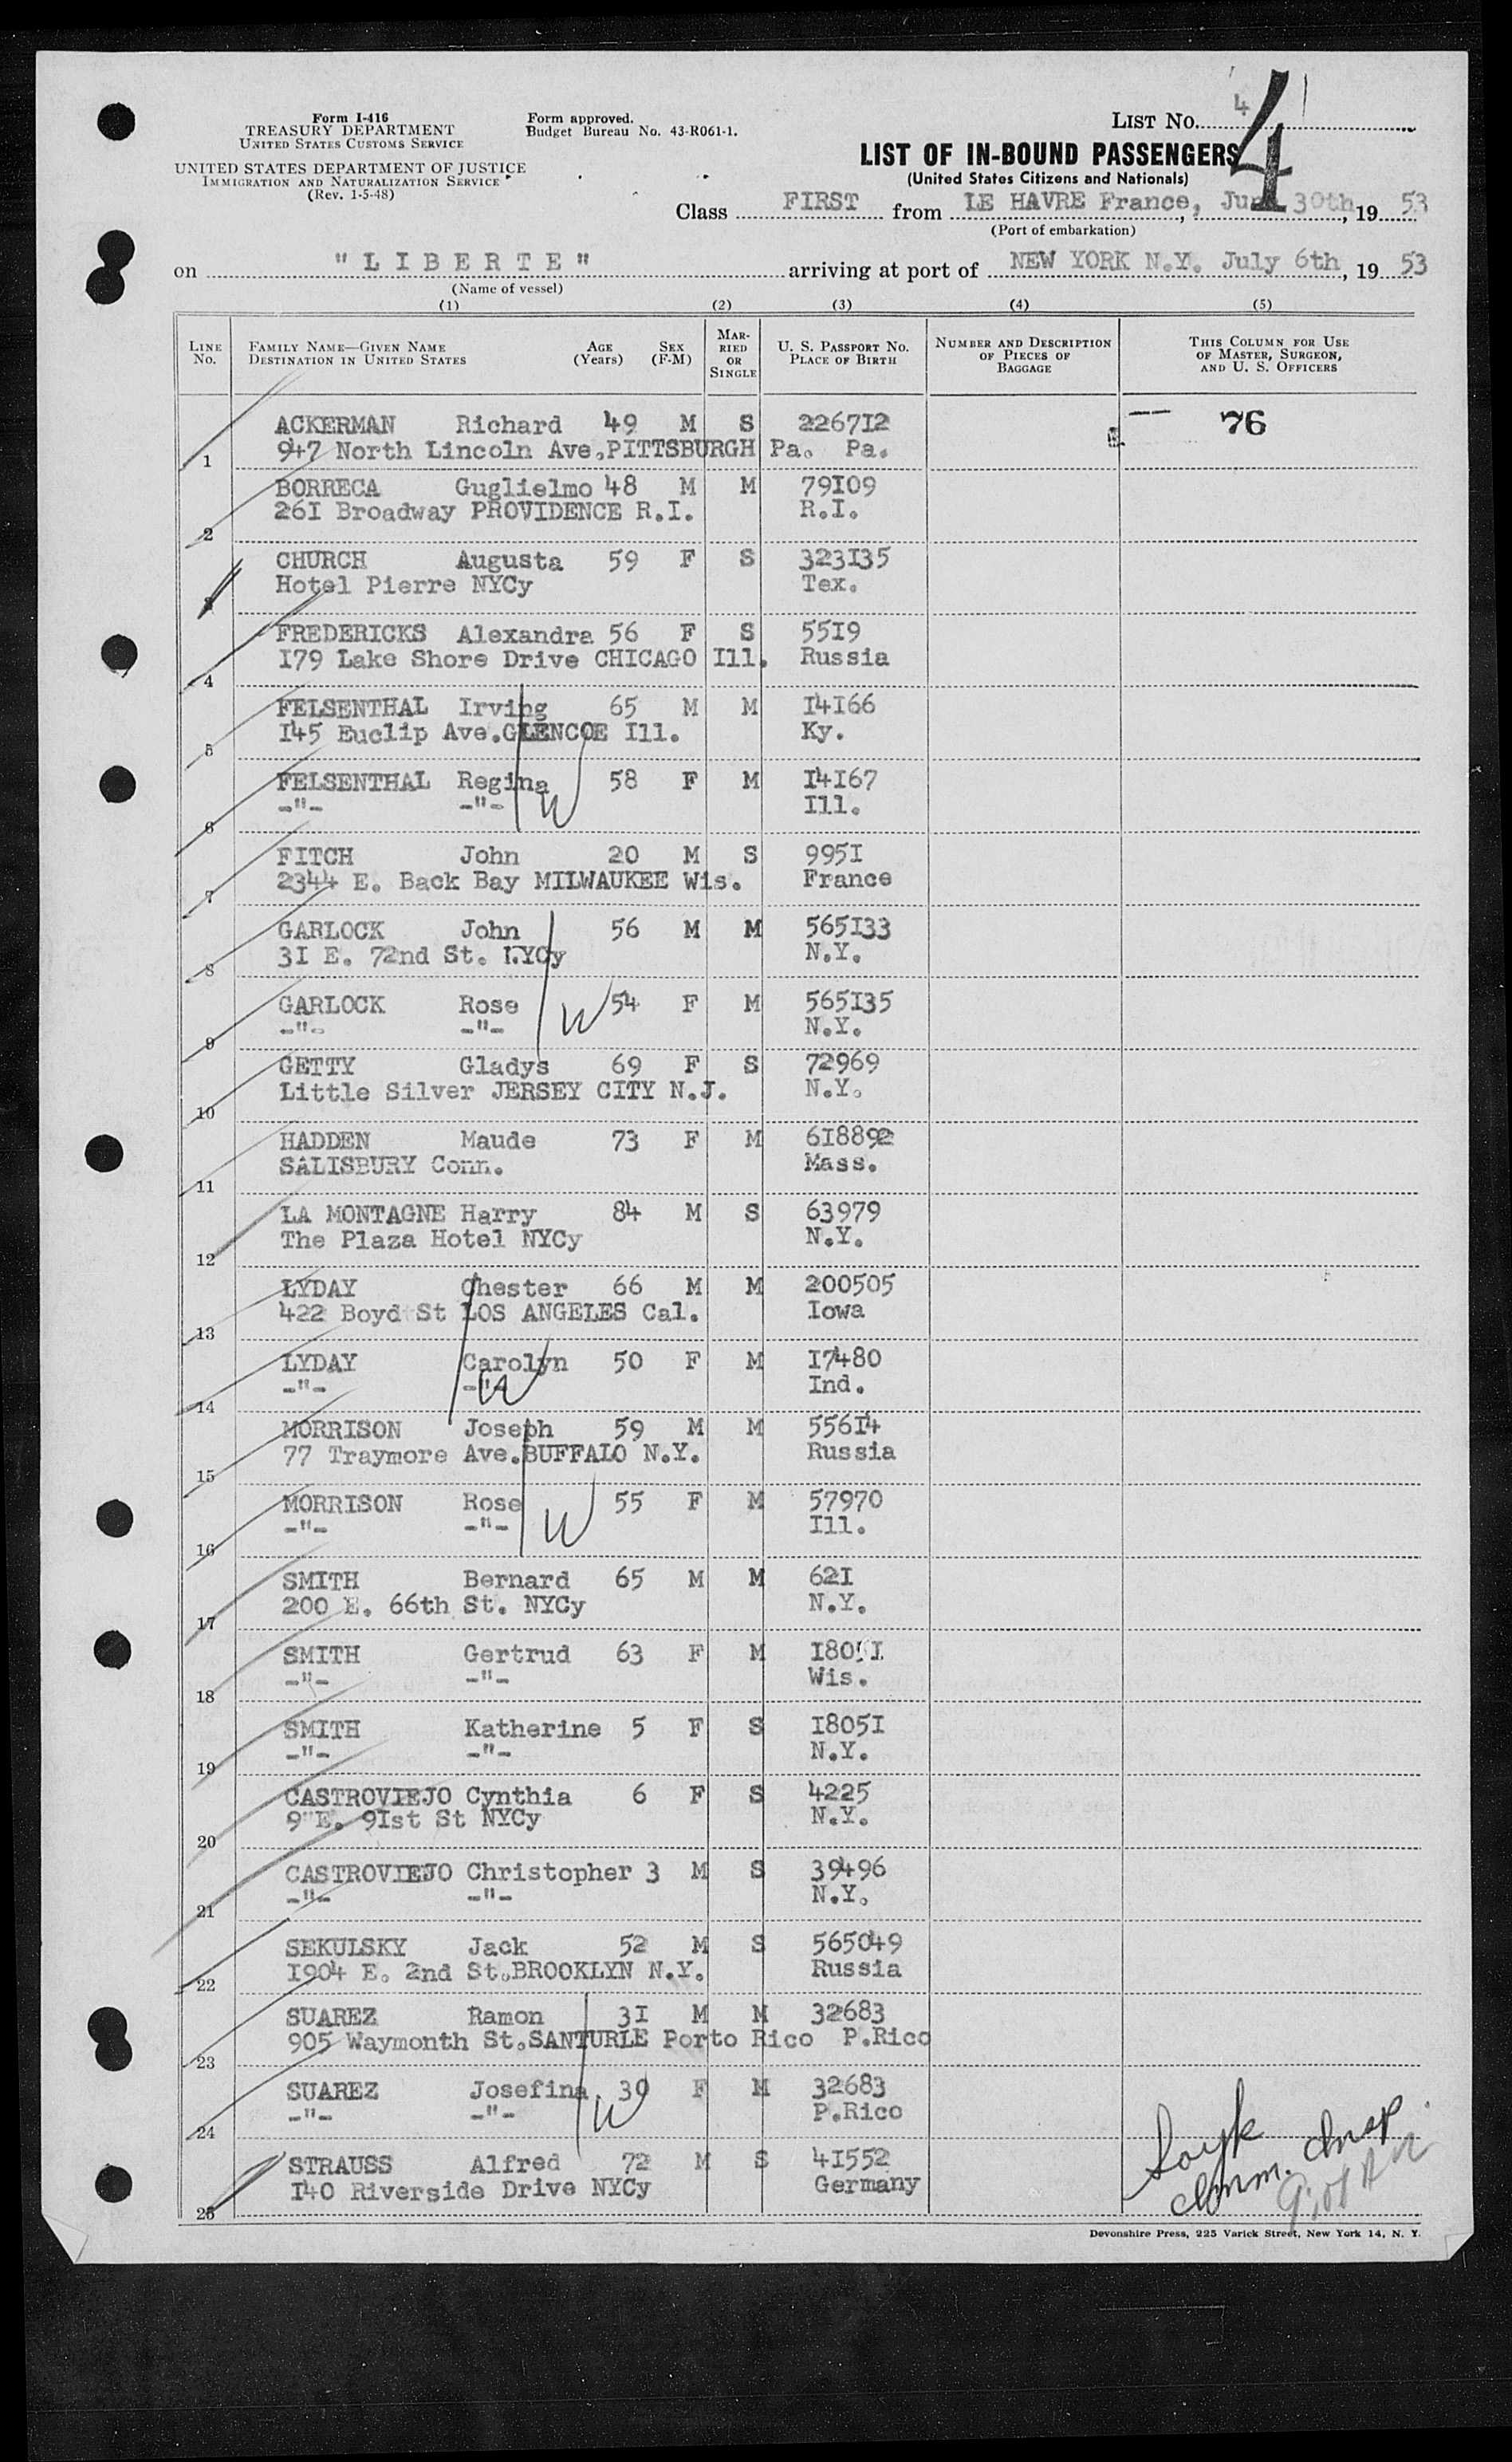 Form I-416
TREASURY DEPARTMENT
UNITED STATES CUSTOMS SERVICE
UNITED STATES DEPARTMENT OF JUSTICE
IMMIGRATION AND NATURALIZATION SERVICE
(Rev. 1-5-48)
Form approved.
Budget Bureau No. 43-R061-1.
LIST No. 4
4
LIST OF IN-BOUND PASSENGERS
(United States Citizens and Nationals)
Class FIRST from LE HAVRE France, June 30th, 19 53
(Port of embarkation)
on "LIBERTE" arriving at port of NEW YORK N.Y. July 6th, 19 53
(Name of vessel)
(1) (2) (3) (4) (5)
LINE No. FAMILY NAME—GIVEN NAME DESTINATION IN UNITED STATES AGE (Years) SEX (F-M) MARRIED OR SINGLE U. S. PASSPORT NO. PLACE OF BIRTH NUMBER AND DESCRIPTION OF PIECES OF BAGGAGE THIS COLUMN FOR USE OF MASTER, SURGEON, AND U. S. OFFICERS
ACKERMAN Richard 49 M S 226712 — 76
1 947 North Lincoln Ave.PITTSBURGH Pa. Pa.
BORRECA Guglielmo 48 M M 79I09
2 26I Broadway PROVIDENCE R.I. R.I.
CHURCH Augusta 59 F S 323I35
3 Hotel Pierre NYCy Tex.
FREDERICKS Alexandra 56 F S 55I9
4 I79 Lake Shore Drive CHICAGO Ill. Russia
FELSENTHAL Irving 65 M M I4I66
5 I45 Euclip Ave.GLENCOE Ill. Ky.
FELSENTHAL Regina 58 F M I4I67
6 -"- -"- W Ill.
FITCH John 20 M S 995I
7 2344 E. Back Bay MILWAUKEE Wis. France
GARLOCK John 56 M M 565I33
8 3I E. 72nd St. NYCy N.Y.
GARLOCK Rose W 54 F M 565I35
9 -"- -"- N.Y.
GETTY Gladys 69 F S 72969
10 Little Silver JERSEY CITY N.J. N.Y.
HADDEN Maude 73 F M 6I8892
11 SALISBURY Conn. Mass.
LA MONTAGNE Harry 84 M S 63979
12 The Plaza Hotel NYCy N.Y.
LYDAY Chester 66 M M 200505
13 422 Boyd St LOS ANGELES Cal. Iowa
LYDAY Carolyn 50 F M I7480
14 -"- -"- W Ind.
MORRISON Joseph 59 M M 556I4
15 77 Traymore Ave.BUFFALO N.Y. Russia
MORRISON Rose 55 F M 57970
16 -"- -"- W Ill.
SMITH Bernard 65 M M 62I
17 200 E. 66th St. NYCy N.Y.
SMITH Gertrud 63 F M I805I
18 -"- -"- Wis.
SMITH Katherine 5 F S I805I
19 -"- -"- N.Y.
CASTROVIEJO Cynthia 6 F S 4225
20 9"E. 9Ist St NYCy N.Y.
CASTROVIEJO Christopher 3 M S 39496
21 -"- -"- N.Y.
SEKULSKY Jack 52 M S 565049
22 I904 E. 2nd St.BROOKLYN N.Y. Russia
SUAREZ Ramon 3I M M 32683
23 905 Waymonth St.SANTURLE Porto Rico P.Rico
SUAREZ Josefina 30 F M 32683
24 -"- -"- W P.Rico
STRAUSS Alfred 72 M S 4I552
25 I40 Riverside Drive NYCy Germany
Imm. Insp.
Devonshire Press, 225 Varick Street, New York 14, N. Y.